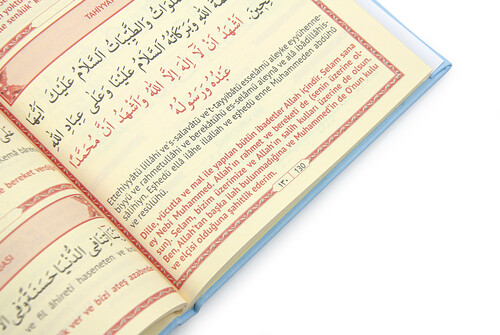 TAHİYYA
وَالطَّيِّبَاتُ اَلسَّلَامُ عَلَيْكَ اَيُّهَا
اللّٰهِ وَبَرَكَاتُهُ اَلسَّلَامُ عَلَيْنَا وَعَلٰى عِبَادِ اللّٰهِ
اَشْهَدُ اَنْ لَا اِلٰهَ اِلَّا اللّٰهُ وَاَشْهَدُ اَنَّ مُحَمَّدًا
عَبْدُهُ وَرَسُولُهُ
Ettehiyyâtü lillâhi ve's-salavâtü ve't-tayyibâtü esselâmü aleyke eyyühenne-
biyyü ve rahmetullâhi ve berekâtühû es-selâmü aleynâ ve alâ ibâdillâhis-
sâlihîyn. Eşhedü ellâ ilâhe illallah ve eşhedü enne Muhammeden abdühû
ve resûlühû.
Dille, vücutla ve mal ile yapılan bütün ibadetler Allah içindir. Selam sana
ey Nebi Muhammed. Allah'ın rahmet ve bereketi de senin üzerine ol-
sun). Selam, bizim üzerimize ve Allah'ın salih kulları üzerine de olsun.
Ben, Allah'tan başka ilah bulunmadığına ve Muhammed'in de O'nun kulu
ve elçisi olduğuna şahitlik ederim.
١٣٠ 130
فِي الدُّنْيَا حَسَنَةً وَفِي
ve fil âhireti haseneten ve
ik ver ve bizi ateş azabında